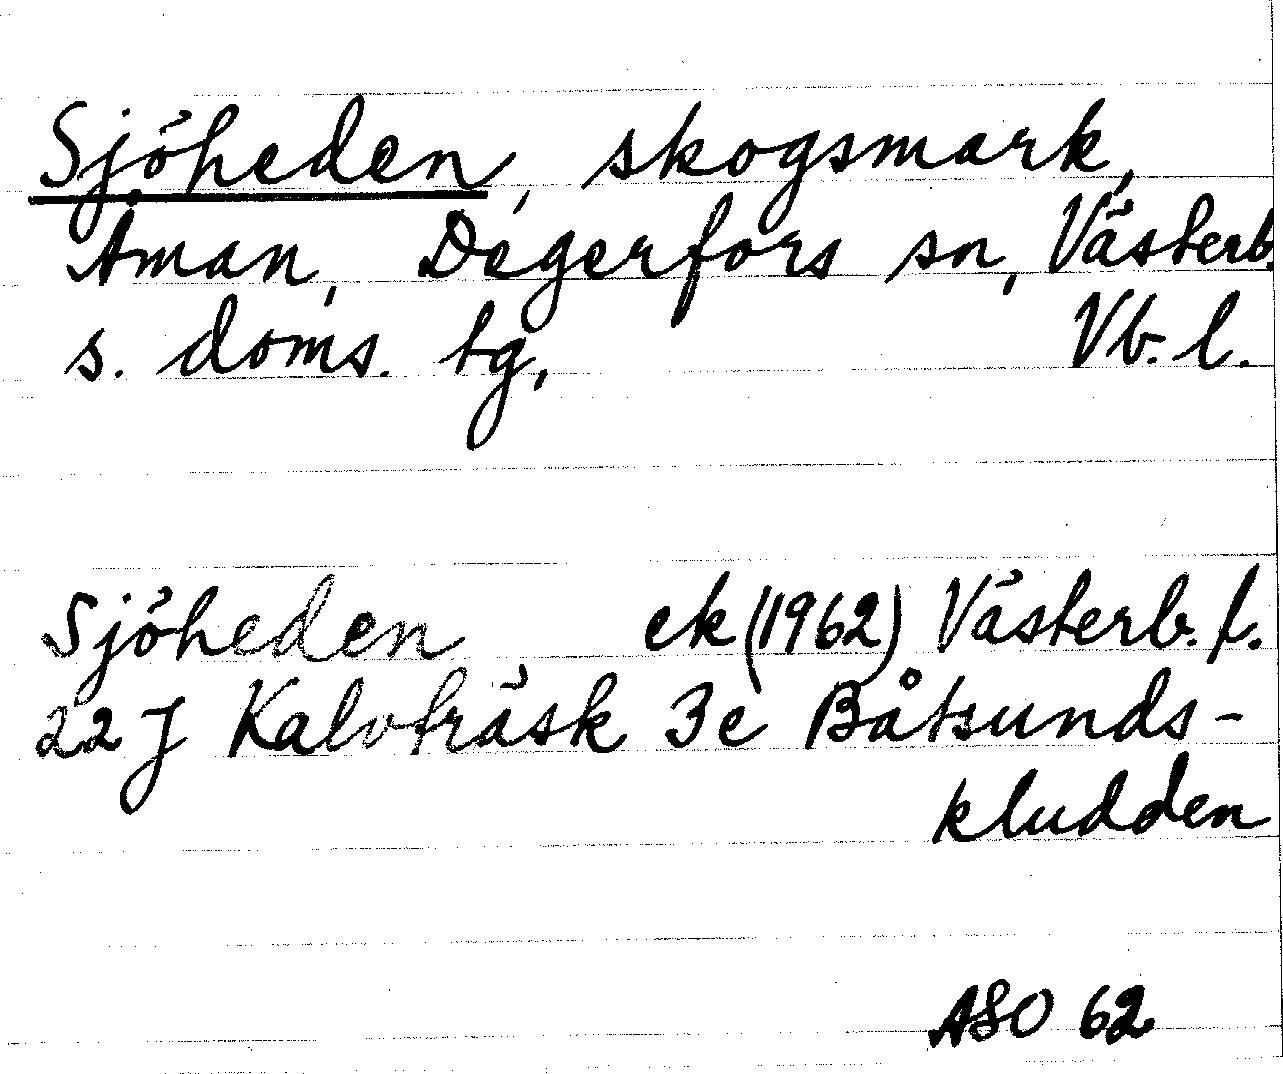 Sjöheden, skogsmark,
Åman, Degerfors sn, Västerb.
s. doms. tg, Vb. l.
Sjöheden, ek (1962) Västerb. l.
22 J Kalvträsk 3e Båtsunds-
kludden
ASO 62